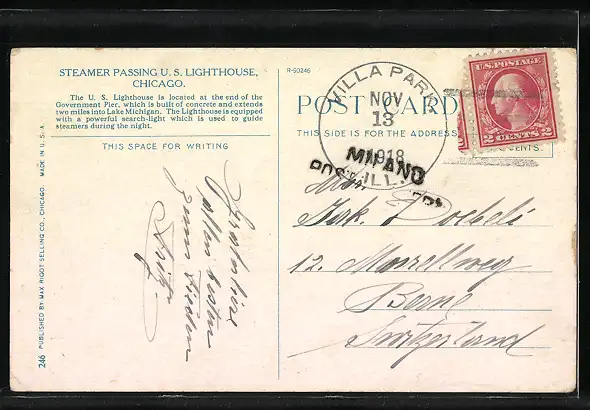 STEAMER PASSING U. S. LIGHTHOUSE,
CHICAGO.
The U. S. Lighthouse is located at the end of the
Government Pier, which is built of concrete and extends
two miles into Lake Michigan. The Lighthouse is equipped
with a powerful search-light which is used to guide
steamers during the night.
THIS SPACE FOR WRITING
R-50246
POST CARD
THIS SIDE IS FOR THE ADDRESS
VILLA PARK
NOV
13
1918
ILL.
MILANO
U.S. POSTAGE
2 CENTS 2
CENTS.
12.
Berne
Switzerland
allen
zum
Fritz
246 PUBLISHED BY MAX RIGOT SELLING CO., CHICAGO. MADE IN U. S. A.